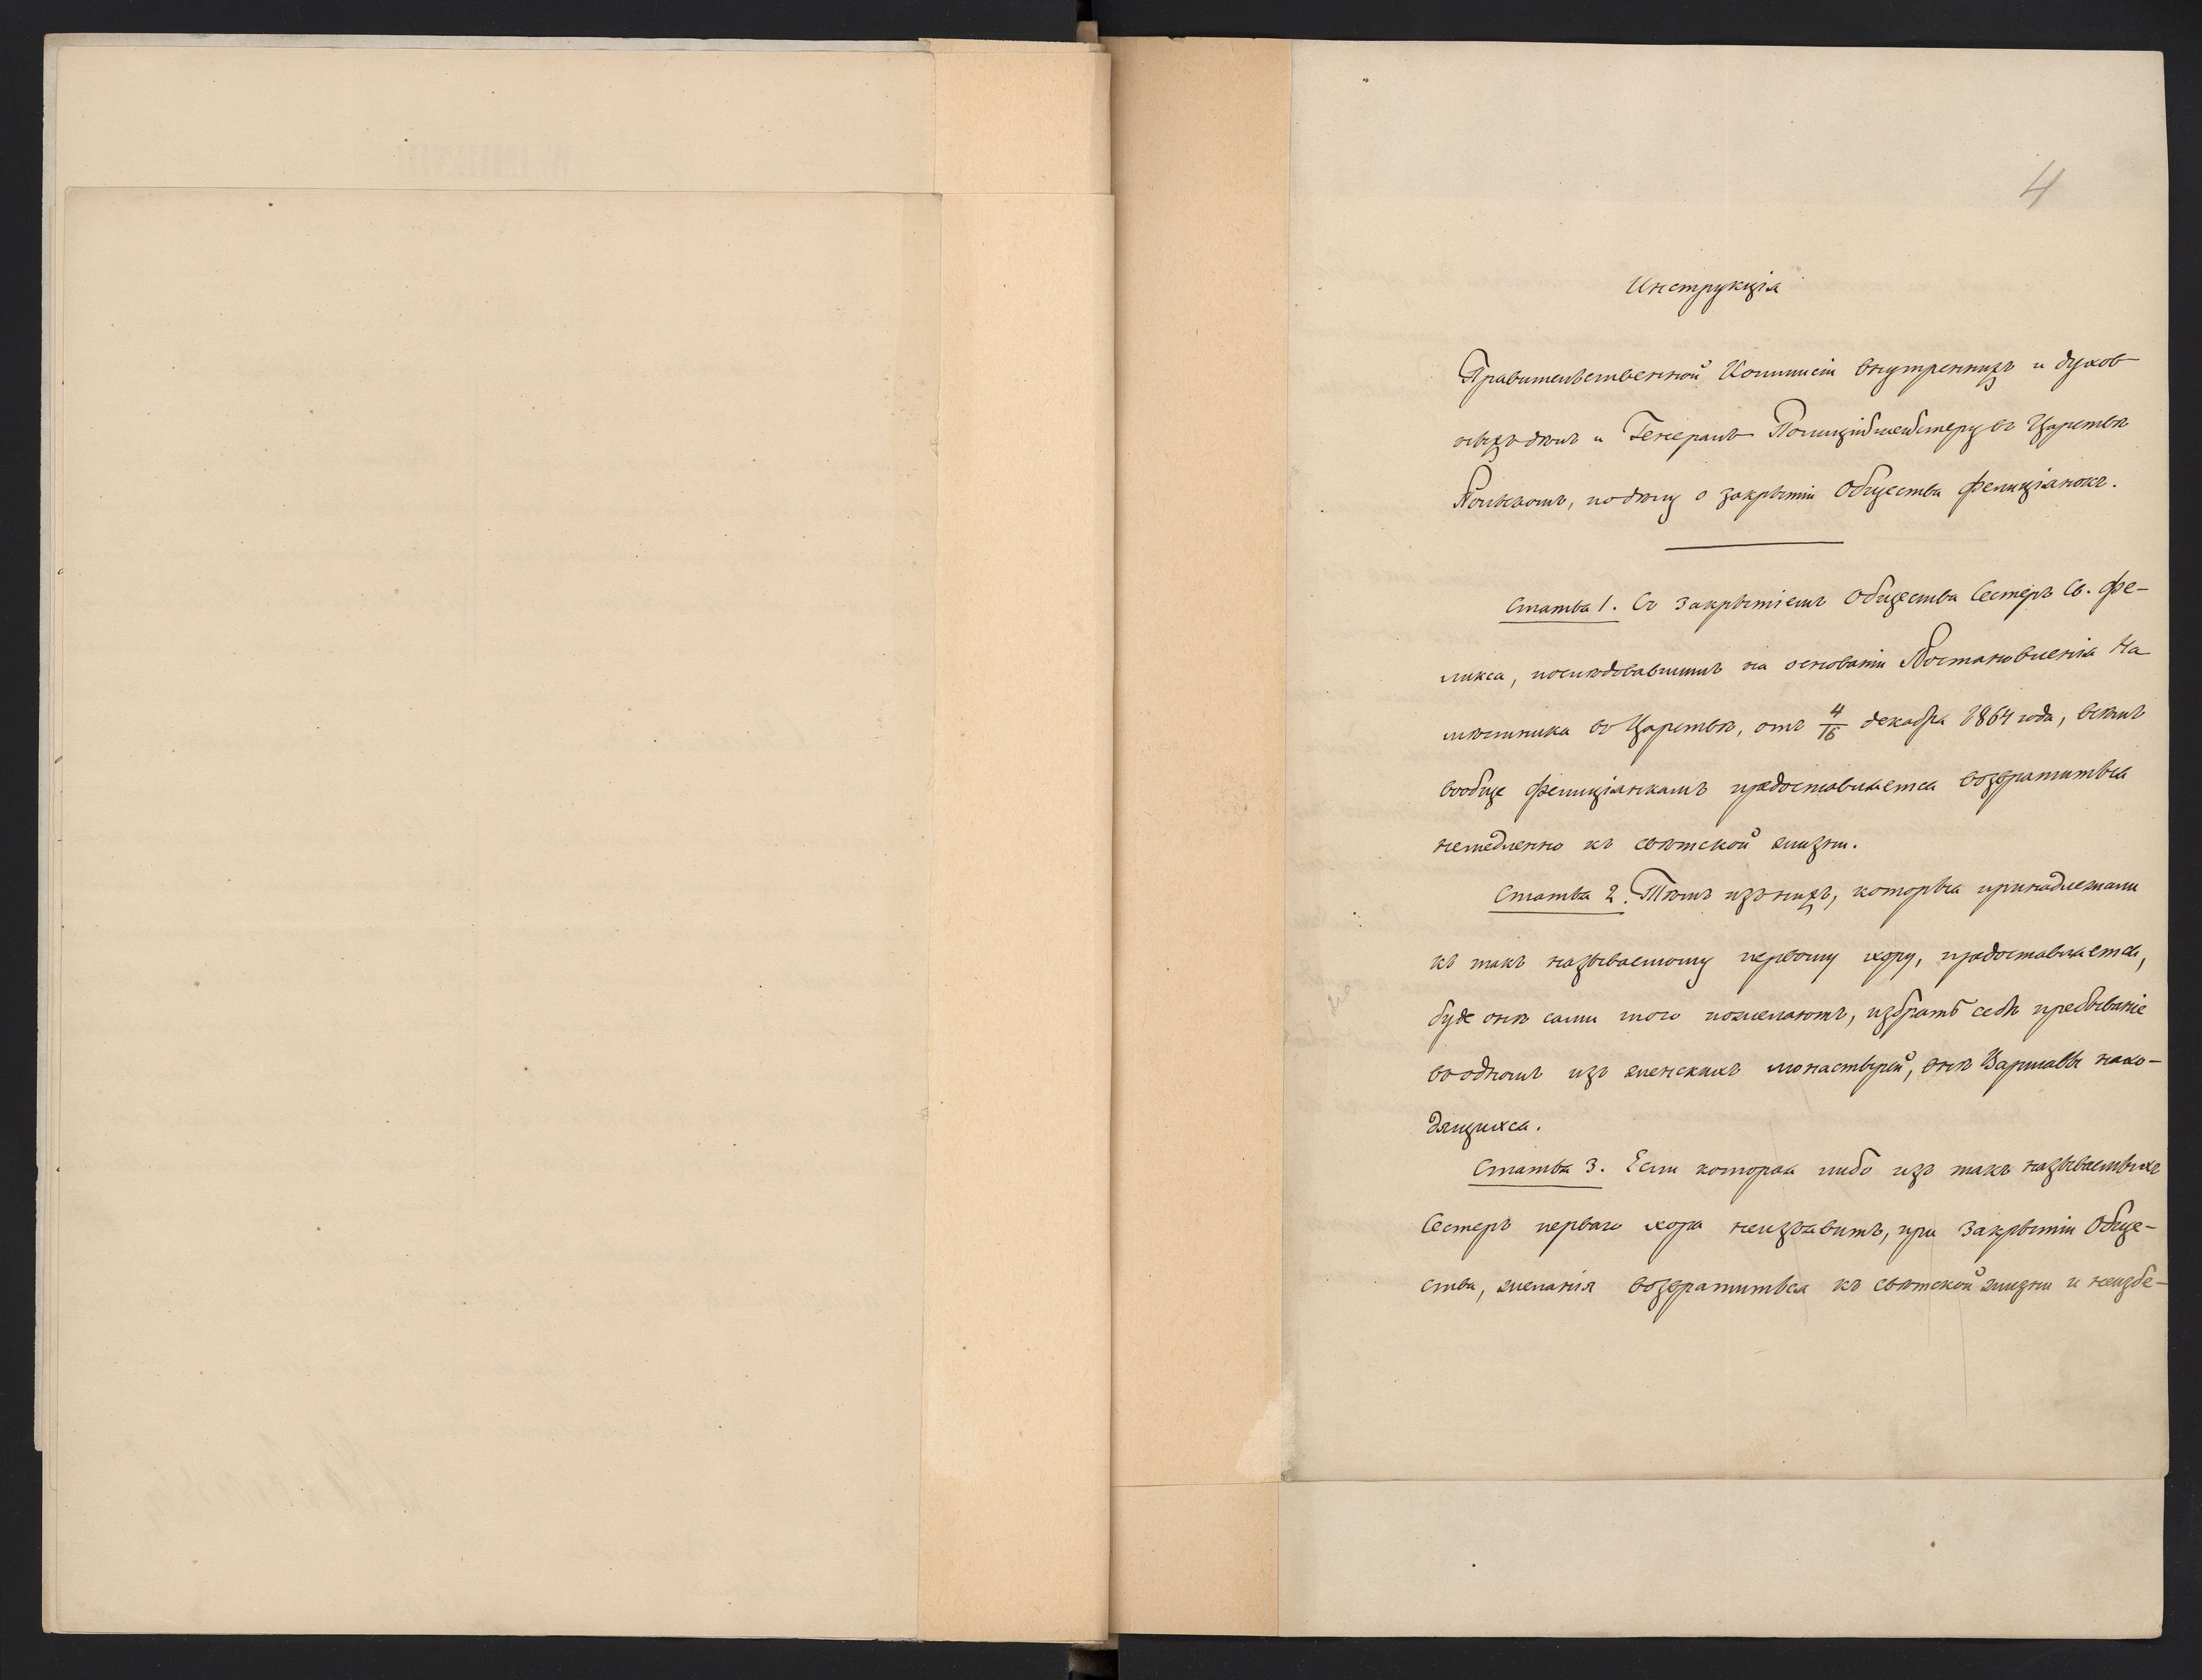 4
Инструкція
Правительственной Коммисіи внутреннихъ и духов
ныхъ дѣлъ и Генералъ Полиціймейстеру въ Царствѣ
Польскомъ, по дѣлу о закрытіи Общества Фелиціянокъ.
Статья 1. Съ закрытіемъ Общества Сестеръ Св. Фе-
ликса, послѣдовавшимъ на основаніи Постановленія На
мѣстника въ Царствѣ, отъ 4/16 декабря 1864 года, всѣмъ
вообще Фелиціянкамъ предоставляется возвратиться
немедленно къ свѣтской жизни.
Статья 2. Тѣмъ изъ нихъ, которыя принадлежали
къ такъ называемому первому хору, предоставляется,
буде онѣ сами того пожелаютъ, избрать себѣ пребываніе
въ одномъ изъ женскихъ монастырей, внѣ Варшавы нахо-
дящихся.
Статья 3. Если которая либо изъ такъ называемыхъ
Сестеръ перваго хора неизъявитъ, при закрытіи Обще-
ства, желанія возвратиться къ свѣтской жизни и неизбе-